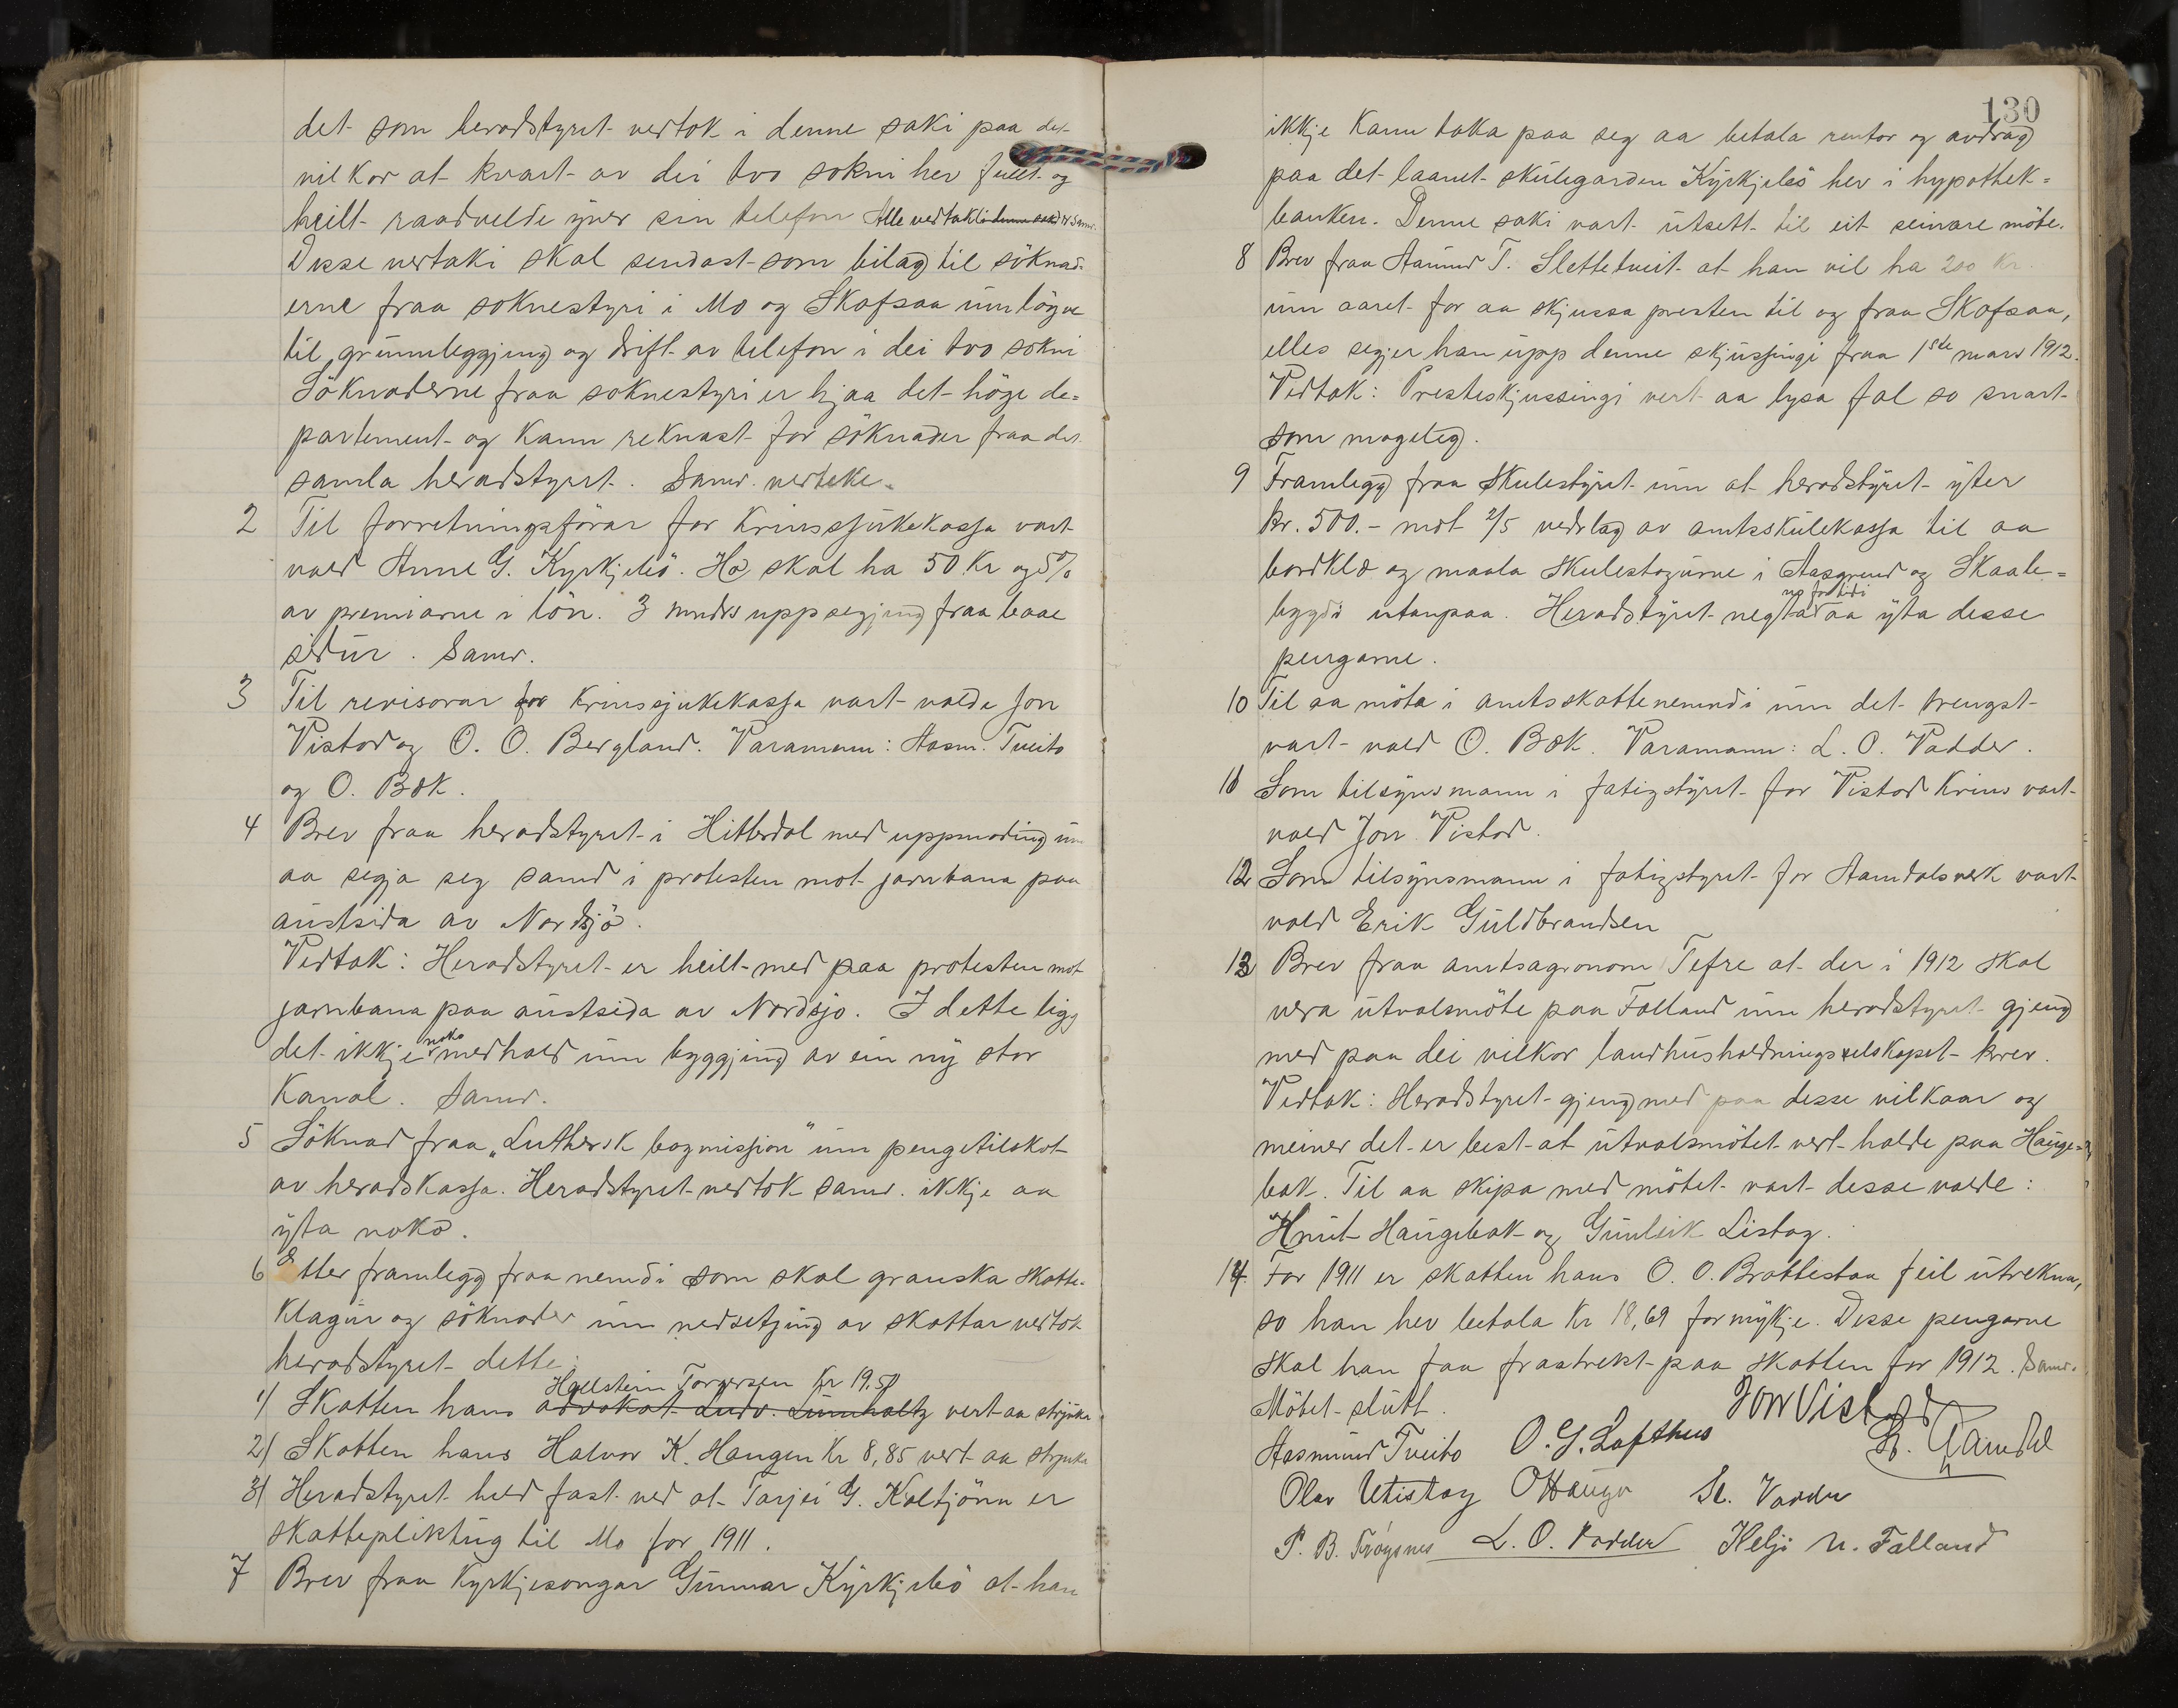 det som heradstyret vertok i denne saki paa det
vilkor at kvart av dei tvo sokni hev fullt og
heilt raadvelde yver sin telefon Alle vedtaki i denne sak er samr.
Disse vertaki skal sendast som bilag til söknad-
erne fraa soknestyri i Mo og Skafsaa um löyve
til grunnleggjing og drift av telefon i dei tvo sokni
Söknaderne fraa soknestyri er hjaa det höge de=
partement og kann reknast for söknader fraa det
samla heradstyret. Samr. verteke.
2 Til forretningsförar for Krinssjukekassa vart
vald Anne G. Kyrkjebö. Ho skal ha 50 Kr og 5%
av premiarne i lön. 3 mndrs uppsegjing fraa baae
sidur. Samr.
3 Til revisorar for Krinssjukekassa vart valde Jon
Vistad og O. O. Bergland. Varamenn: Aasm. Tveito
og O. Bæk.
4 Brev fraa heradstyret i Hitterdal med uppmoding um
aa segja seg samd i protesten mot jarnbana paa
austsida av Nordsjö.
Vedtak: Heradstyret er heilt med paa protesten mot
jarnbana paa austsida av Nordsjo. I dette ligg
det ikkje noko medhald um byggjing av ein ny stor
Kanal. Samr.
5 Söknad fraa „Luthersk bogmission" um pengetilskot
av heradskassa. Heradstyret vedtok samr. ikkje aa
yta noko.
6 Etter framlegg fraa nemdi som skal granska skatte-
klagur og söknader um nedsetjing av skattar vertok
heradstyret dette:
Hallstein Torgersen Kr 19.50
1) Skatten hans advokat Ludv. Lumholtz vert aa strjuka
2) Skatten hans Halvor K. Haugen Kr 8,85 vert aa strjuka
3) Heradstyret held fast ved at Tarjei G. Kaltjönn er
skattepliktug til Mo for 1911.
7 Brev fraa Kyrkjesongar Gunnar Kyrkjebö at han
130
ikkje kann taka paa seg aa betala rentor og avdrag
paa det laanet skulegarden Kyrkjebö hev i hypothek=
banken. Denne saki vart utsett til eit seinare möte.
8 Brev fraa Aamund T. Slettetveit at han vil ha 200 Kr.
um aaret for aa skjussa presten til og fraa Skafsaa,
elles segjer han upp denne skjussingi fraa 1ste mars 1912.
Vedtak: Presteskjussingi vert aa lysa fal so snart
som mogeleg.
9 Framlegg fraa Skulestyret um at heradstyret yter
Kr. 500.- mot 2/5 vedrlag av amtsskulekassa til aa
bordklæ og maala Skulestogurne i Aasgrend og Skaale=
no fortidi
bygdi utanpaa. Heradstyret negtad aa yta desse
pengarne.
10 Til aa möta i amtsskattenemndi um det trengst
vart vald O. Bæk. Varamann: L. O. Vadder.
11 Som tilsynsmann i fatigstyret for Vistad Krins vart
vald Jon Vistad.
12 Som tilsynsmann i fatigstyret for Aamdalsverk vart
vald Erik Guldbrandsen
13 Brev fraa amtsagronom Tefre at der i 1912 skal
vera utvalsmöte paa Falland um heradstyret gjeng
med paa dei vilkor landhusholdningsselskapet krev.
Vedtak: Heradstyret gjeng med paa desse vilkaar og
meiner det er best at utvalsmötet vert halde paa Hauge=
bak. Til aa skipa med mötet vart desse valde:
Knut Haugebak og Gunleik Listog.
14. For 1911 er skatten hans O. O. Brattestaa feil utrekna,
so han hev betala Kr 18,69 formykje. Desse pengarne
skal han faa fraatrekt paa skatten for 1912. Samr.
Mötet slutt. Jon Vistad
Aasmund Tveito O. G. Lofthus
Olav Utistog O Haugen Sl. Vadder
P. B. Tröysnes L. O. Vadder Helji N. Falland